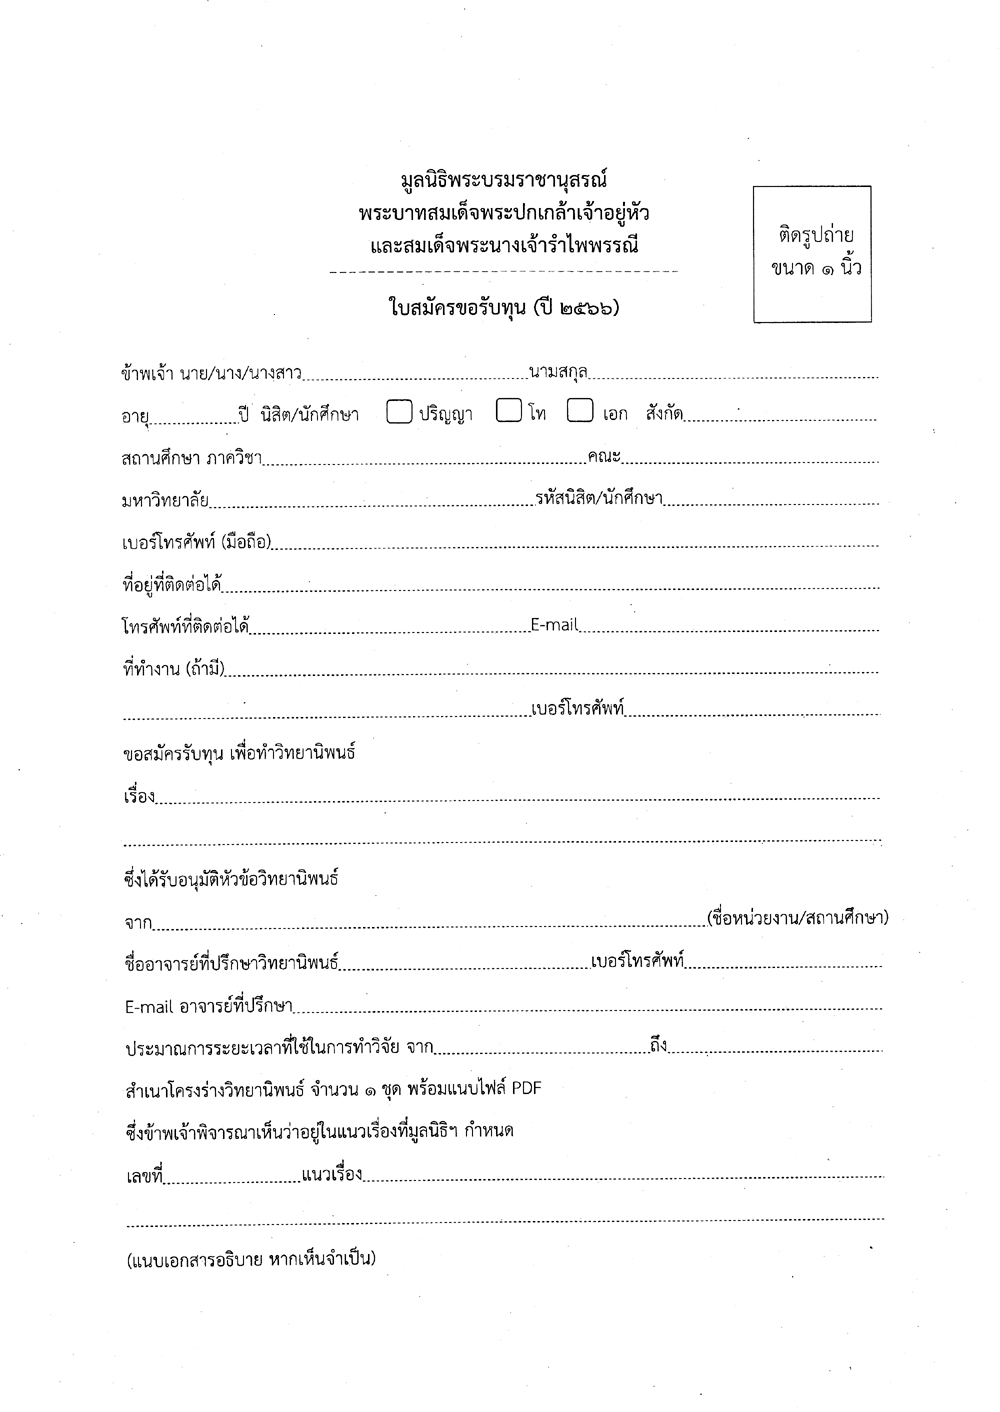 มูลนิธิพระบรมราชานุสรณ์
พระบาทสมเด็จพระปกเกล้าเจ้าอยู่หัว
และสมเด็จพระนางเจ้ารำไพพรรณี
ติดรูปถ่าย
ขนาด ๑ นิ้ว
ใบสมัครขอรับทุน (ปี ๒๕๖๖)
ข้าพเจ้า นาย/นาง/นางสาว นามสกุล
อายุ ปี นิสิต/นักศึกษา ปริญญา โท เอก สังกัด
สถานศึกษา ภาควิชา คณะ
มหาวิทยาลัย รหัสนิสิต/นักศึกษา
เบอร์โทรศัพท์ (มือถือ)
ที่อยู่ที่ติดต่อได้
โทรศัพท์ที่ติดต่อได้ E-mail
ที่ทำงาน (ถ้ามี)
เบอร์โทรศัพท์
ขอสมัครรับทุน เพื่อทำวิทยานิพนธ์
เรื่อง
ซึ่งได้รับอนุมัติหัวข้อวิทยานิพนธ์
จาก (ชื่อหน่วยงาน/สถานศึกษา)
ชื่ออาจารย์ที่ปรึกษาวิทยานิพนธ์ เบอร์โทรศัพท์
E-mail อาจารย์ที่ปรึกษา
ประมาณการระยะเวลาที่ใช้ในการทำวิจัย จาก ถึง
สำเนาโครงร่างวิทยานิพนธ์ จำนวน ๑ ชุด พร้อมแนบไฟล์ PDF
ซึ่งข้าพเจ้าพิจารณาเห็นว่าอยู่ในแนวเรื่องที่มูลนิธิฯ กำหนด
เลขที่ แนวเรื่อง
(แนบเอกสารอธิบาย หากเห็นจำเป็น)